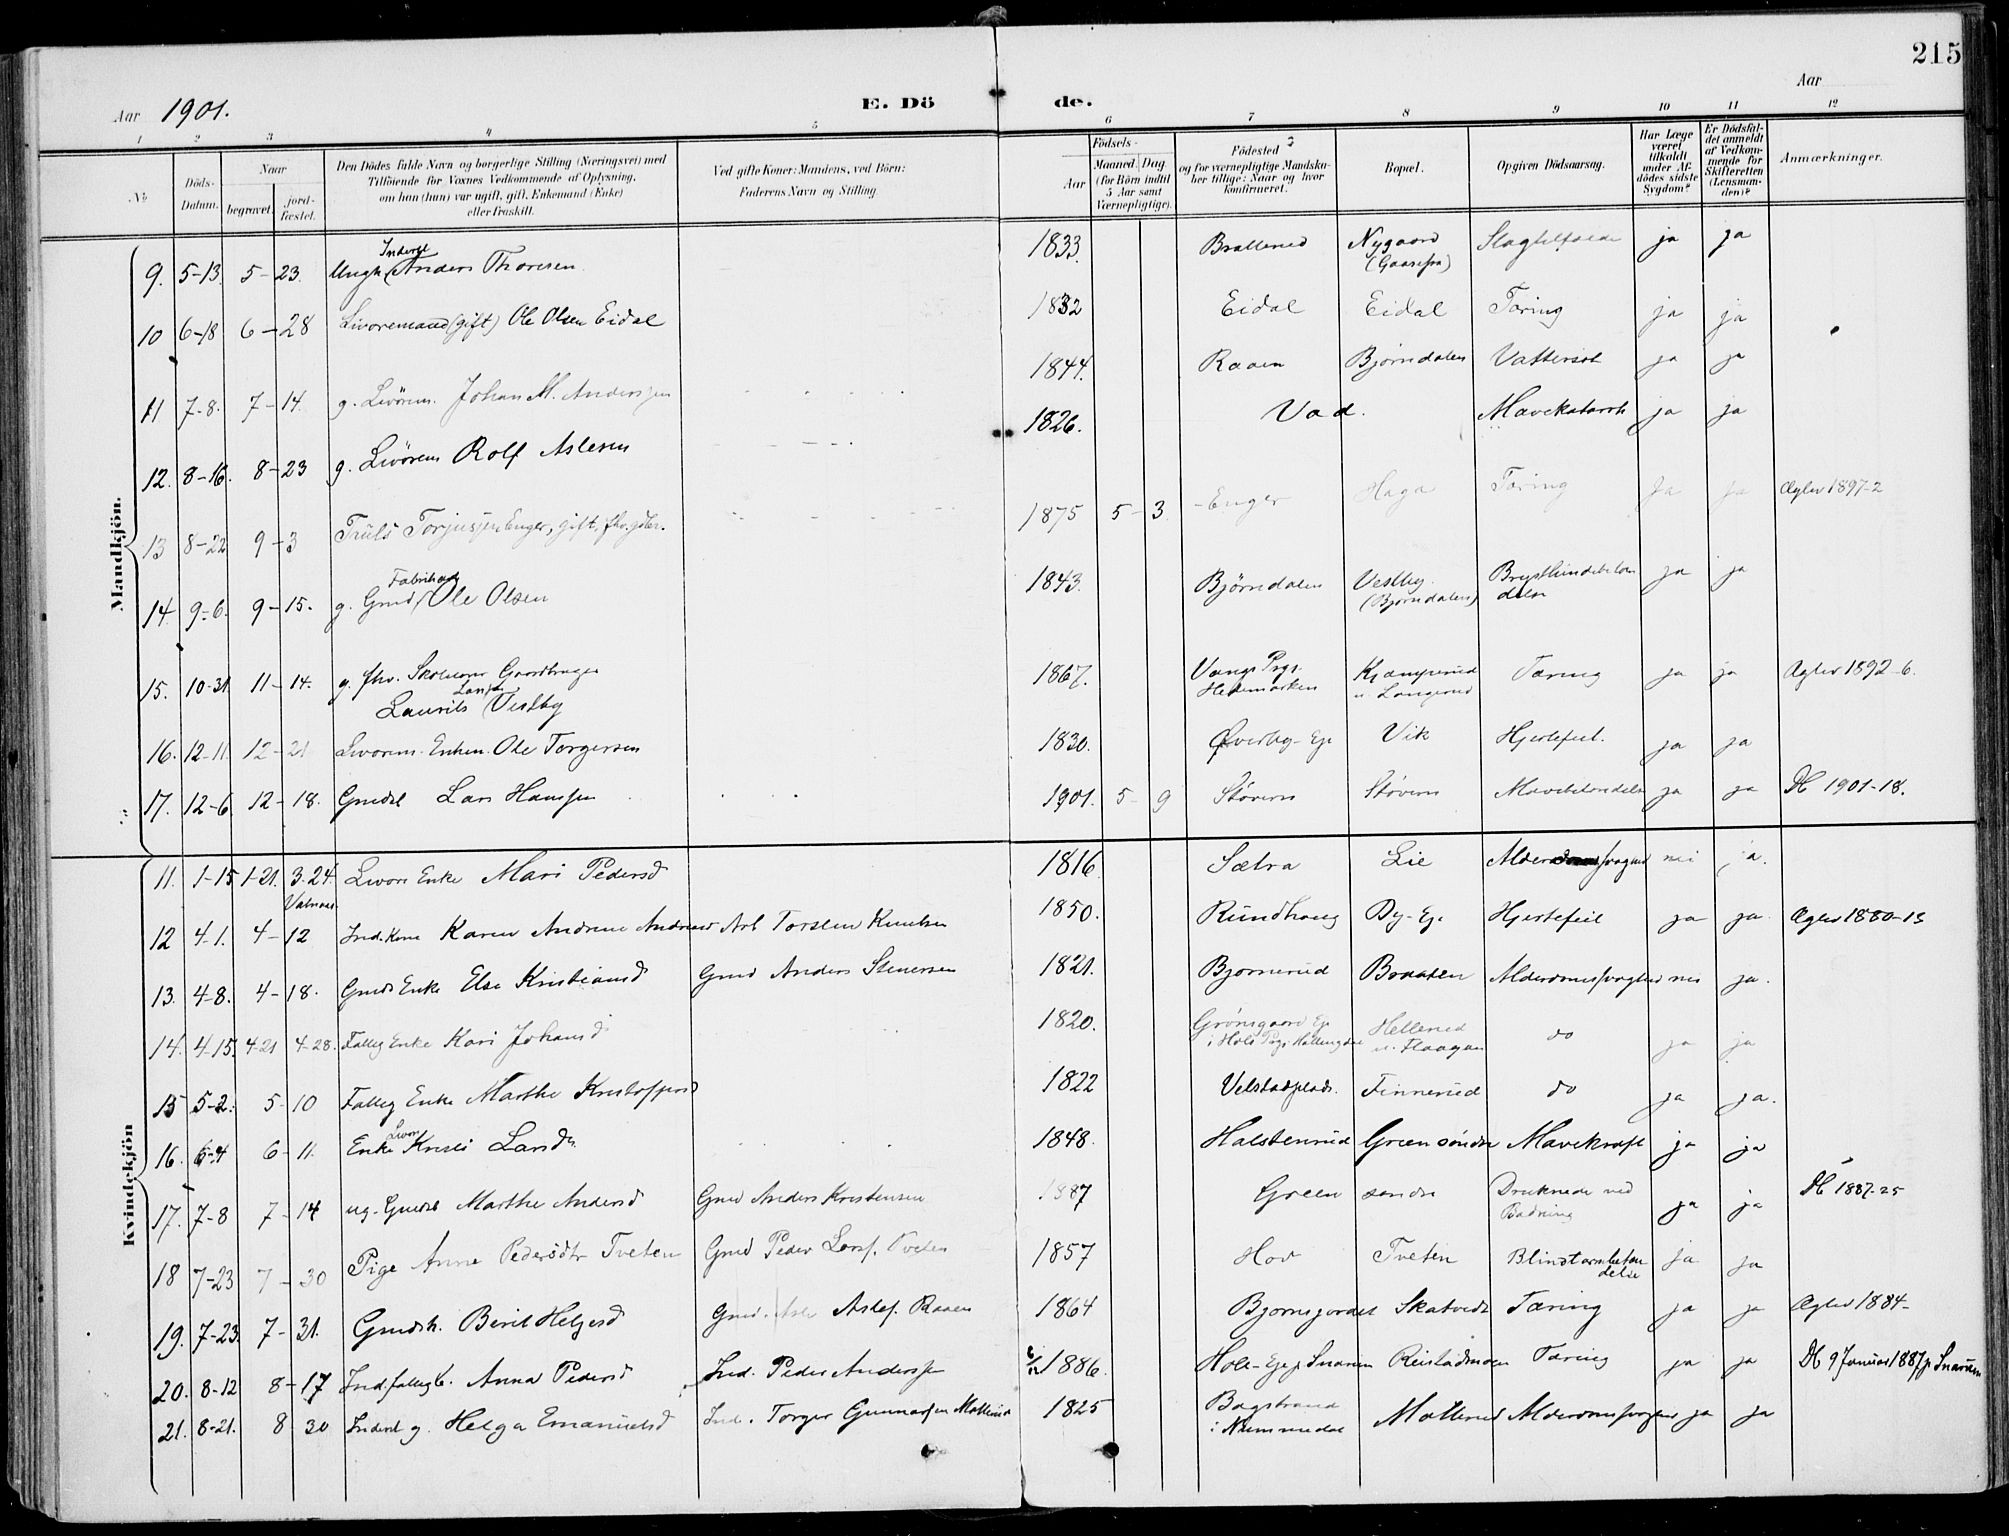 215
Aar 1901.
E. Döde.
Aar
1 2 3 4 5 6 7 8 9 10 11 12
No
Döds-Datum.
Naar
begravet.
jord-fæstet.
Den Dödes fulde Navn og borgerlige Stilling (Næringsvei) med
Tilföiende for Voxnes Vedkommende af Oplysning,
om han (hun) var ugift, gift, Enkemand (Enke)
eller fraskilt.
Ved gifte Koner: Mandens, ved Börn:
Faderens Navn og Stilling.
Födsels-
Aar
Maaned. Dag
(for Börn indtil
5 Aar samt
Værnepligtige).
Födested
og for værnepligtige Mandska-
ber tillige: Naar og hvor
konfirmeret.
Bopæl.
Opgiven Dödsaarsag.
Har Læge
været
tilkaldt
under Af-
dödes sidste
Sygdom?
Er Dödsfal-
det anmeldt
af Vedkom-
mende for
Skifteretten
(Lensman-
den)?
Anmærkninger.
Mandkjön.
9. 5-13. 5-23. Ungk. Inderst Anders Thoresen 1833. Nygaard ja ja
10 6-18 6-28 (gift) Ole Olsen Eidal 1832 Eidal Eidal Tæring ja ja
11 7-8. 7-14. g. Johan M. Anderssen 1844. Raaen Bjørndalen Vattersot ja ja
12. 8-16. 8-23 g. Rolf Aslesen 1826. Vad. Mavekatarrh ja ja
13 8-22 9-3 Truls Torjussen Enger, gift, fhv. 1875 5-3 Enger Haga Tæring ja ja Æglev 1897-2
14. 9-6. 9-15. g. Gmd. Ole Olsen 1843. Bjørndalen Vestby (Bjørndalen) ja ja
15. 10-31. 11-14. g. fhv. Gaardbruger Laurits Larsen Vestby 1867. Vangs Prgj. Hedemarken Kjæmperud u. Langerud Tæring ja ja Æglev 1892-6.
16. 12-11. 12-21 Enkem. Ole Torgersen 1830. Øverby-Eje Vik Hjertefeil. ja ja
17. 12-6. 12-18. Gmdsl Lars Hanssen 1901. 5-9 Støvern Støvern ja ja Db 1901-18.
Kvindekjön
11. 1-15 1-21. 3-24. Enke Mari Pedersd 1816 Sætra Lie nei ja.
12 4-1. 4-12 Ind. Kone Karen Andrine Andersd Arb Torsten Knudsen 1850. Rundhaug By-Eje Hjertefeil ja ja Æglev 1880-13
13. 4-8. 4-18. Gmds Enke Else Kristiansd Gmd Anders Stenersen 1821. Bjørnerud Braaten Alderdomssvaghed nei ja.
14. 4-15. 4-21 4-28. Fattig Enke Kari Johansd 1820. Grønsgaard Eje Hellerud u. Flaagan do ja ja
15 5-2. 5-10 Fattig Enke Marthe Kristoffersd 1822 Finnerud do ja ja.
16. 6-4 6-11. Enke Larsd. 1848. Halstenrud Green søndre Mavekræft ja ja
17. 7-8 7-14 ug. Gmdsl Marthe Andersd Gmd Anders Kristensen 1887 Green søndre Druknede ved Badning ja ja Db 1887-25
18 7-23 7-30 Pige Anne Pedersdtr Tveten Gmd Peder Larss. Tveten 1857 Hov Tveten Blindtarmbetændelse ja ja
19. 7-23. 7-31. Gmdsk. Berit Helgesd Gmd. Raaen 1864 Bjørnsjordet Skatvedt Tæring ja ja Æglev 1884-
20. 8-12 8-17 Ind. fattig b. Anna Pedersd Ind. Peder Anderssen 6/12 1886. Hole-Eje p. Snarum Reistadmoen Tæring ja ja Db 9 Januar 1887 p. Snarum
21. 8-21. 8 30 Inderst g. Helga Emanuelsd Ind. Torger Gunnarsen Mollerud 1825 Bagstrand i Nummedal Mollerud Alderdomssvaghed ja ja